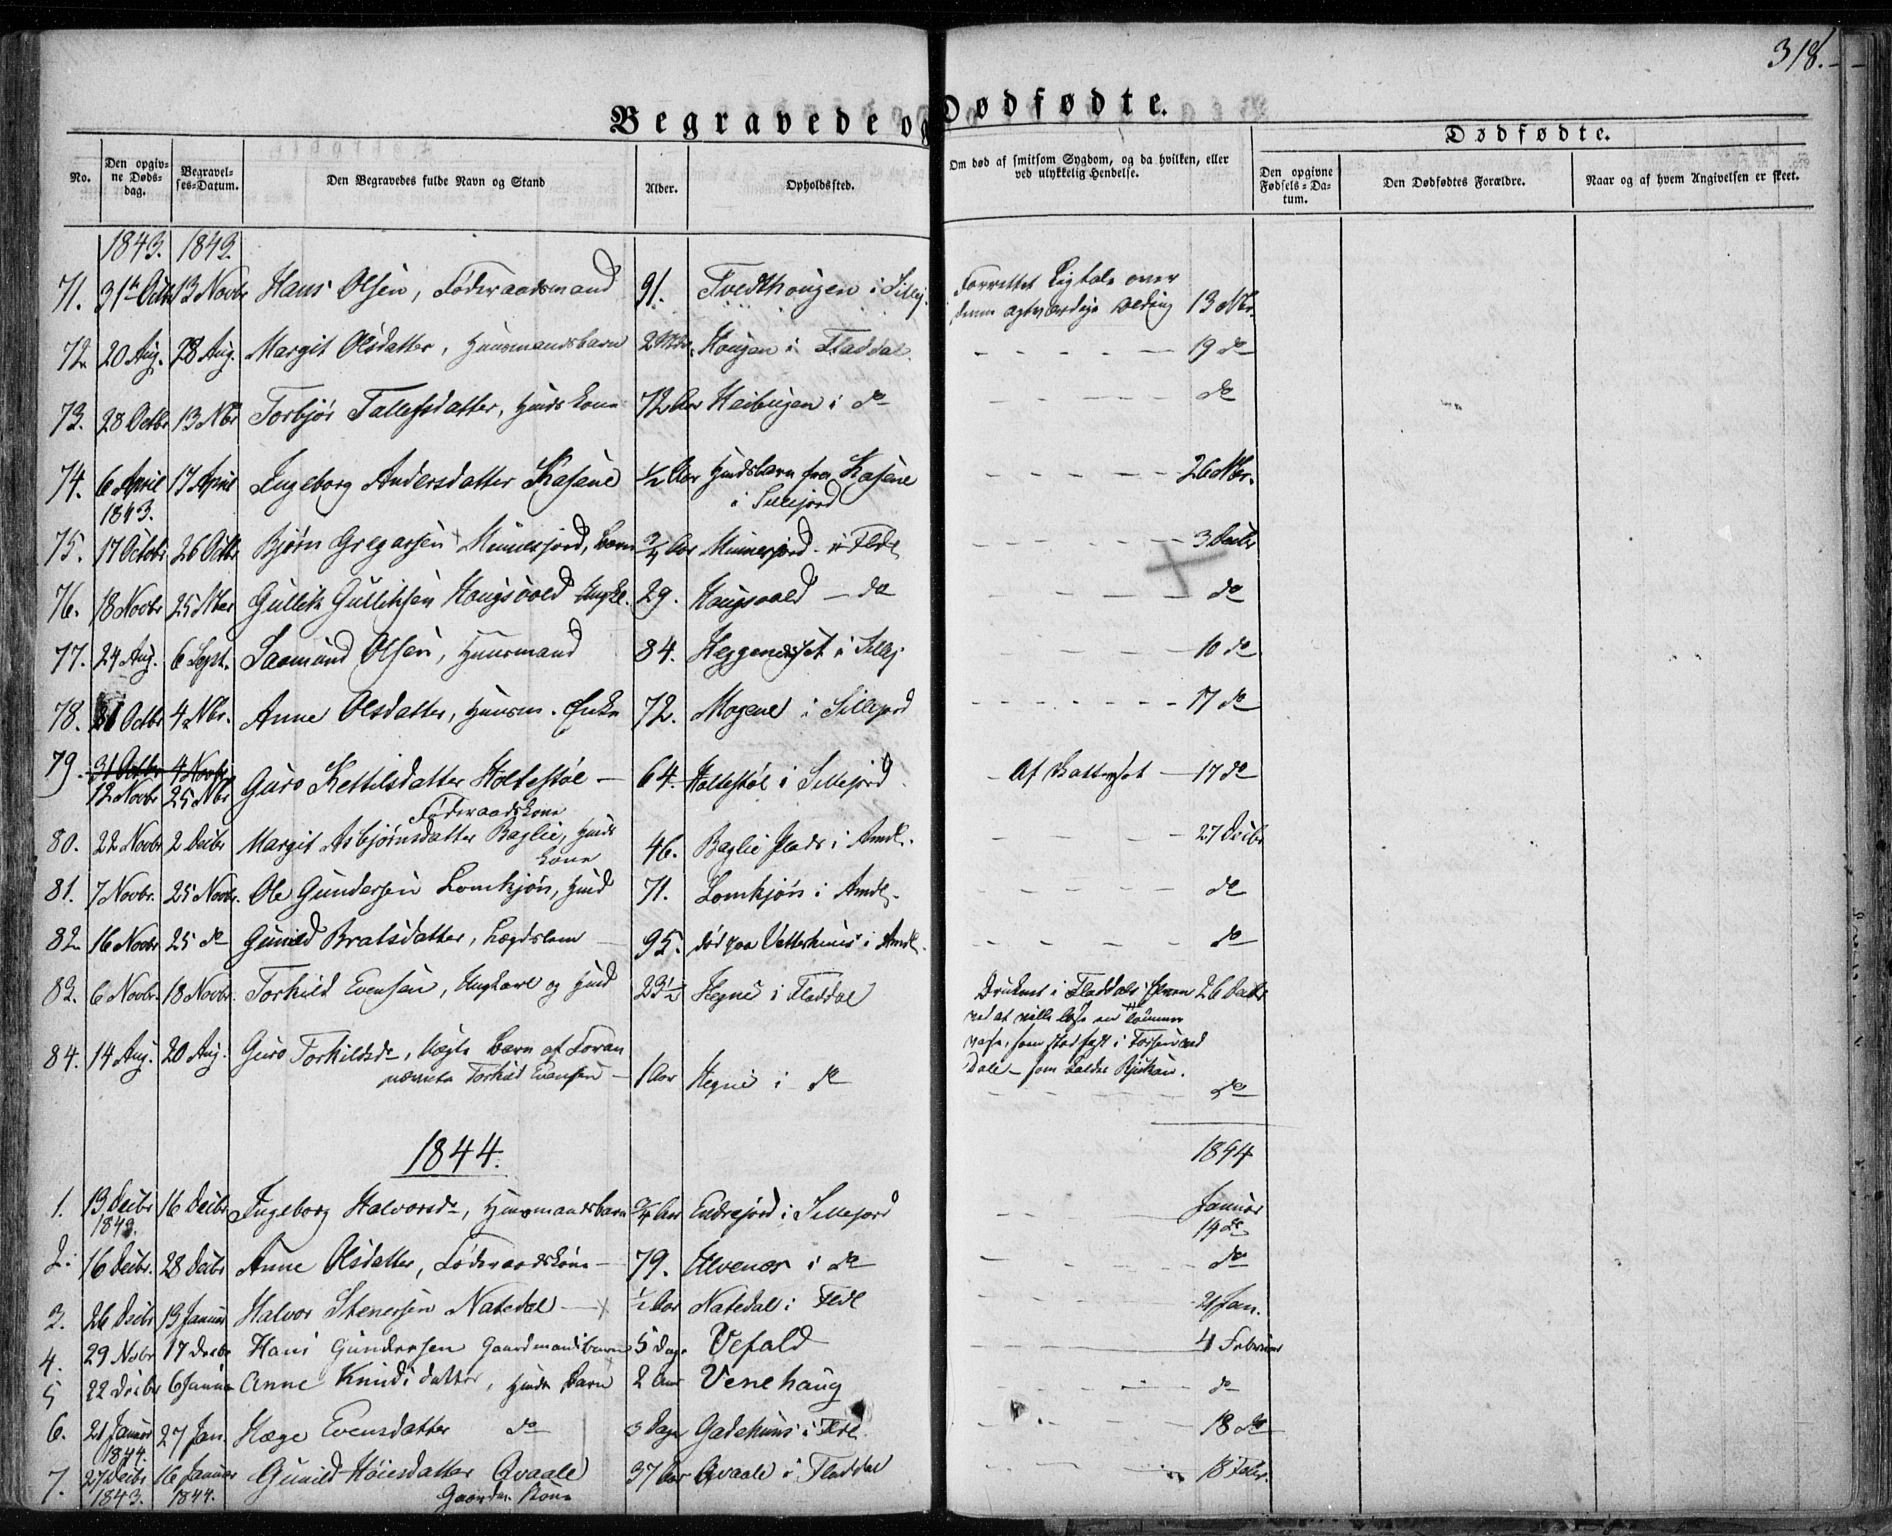 318.
Begravede og Dødfødte.
Dødfødte.
No.
Den opgivne Dødsdag.
Begravelses-Datum.
Den Begravedes fulde Navn og Stand
Alder.
Opholdssted.
Om død af smitsom Sygdom, og da hvilken, eller ved ulykkelig Hendelse.
Den opgivne Fødsels-Datum.
Den Dødfødtes Forældre.
Naar og af hvem Angivelsen er skeet.
1843. 1843.
71. 31te Octbr 13 Novbr Hans Olsen, Føderaadsmand 91. Tvedthougen i Sillej. Forrettet Ligtale over denne agtværdige Olding 13 Nbr.
72. 20 Aug. 28 Aug. Margit Olsdatter, Huusmandsbarn Hougen i Fladdal. 19 do
73. 28 Octbr 13 Nbr Torbjør Tallefsdatter, Huds Kone 72 Aar i do do
74. 6 April 1843. 17 April Ingeborg Andersdatter Kasene 1/2 Aar Huusbarn fra Kasene i Sillejord 26 Nbr.
75. 17 Octobr 26 Octbr Bjørn Gregarsen Minnesjord, Barn 3/4 Aar Minnesjord i Fldl 3 Decbr
76. 18 Novbr 25 Nbr Gullik Gulliksen Hougsvold Ungk. 29. Hougsvold - do do
77. 24 Aug. 6 Sept. Saamund Olsen, Huusmand 84. i Sillej. 10 do
78. 31 Octbr 4 Nbr. Anne Olsdatter, Huusm. Enke 72. Mogene i Sillejord 17 do
79. 31 Octbr 4 Novbr
12 Novbr 25 Nbr Guro Kettilsdatter Holtestøl - Føderaadskone 64. Holtestøl i Sillejord Af Vattersot 17 do
80. 22 Novbr 2 Decbr Margit Asbjørnsdatter Baglie, Huds Kone 46. Baglie Plads i Amdl. 27 Decbr
81. 7 Novbr. 25 Novbr. Ole Gundersen Lomkjøn, Husd 71. Lomkjøn i Amdl. do
82. 16 Novbr 25 do Gunild Bratsdatter, Lægdslem 95. død paa Vetterhuus i Amdl. do
83. 6 Novbr. 18 Novbr. Torkild Evensen, Ungkarl og Husd 23 1/2 Hegne i Fladdal Druknet i Fladdals Elven 26 Decbr
ved at ville løse en Tømmer
som stod fast i Fossen ved
Dale - som kaldes Rjukan.
84. 14 Aug. 20 Aug. Guro Torkildsdr, Uægte Barn af Foran
nævnte Torkild Evensen - 1 Aar Hegne i do do
1844.
1844
1. 13 Decbr 1843. 16 Decbr Ingeborg Halvorsdr, Huusmandsbarn 3/4 Aar Endrejord i Sillejord Januar 14 de
2. 16 Decbr. 28 Decbr Anne Olsdatter, Føderaadskone - 79. Ulvenos i do do
3. 26 Decbr 13 Januar Halvor Stenersen Natedal 1/2 Aar Natedal i Fldl 21 Jan.
4. 29 Nobr 17 Decbr Hans Gundersen Gaardmandsbarn 5 Dage Vefald 4 Februar
5 22 Decbr 6 Januar Anne Knudsdatter, Huds Barn 2 Aar Venehaug do
6. 21 Januar 1844. 27 Jan. Hæge Evensdatter do 3 Dage Gadehuus i Fldl. 18 do
7. 27 Decbr 1843. 16 Januar 1844. Gunild Høiesdatter Qvaale Gaardm. Kone 37 Aar Qvaale i Fladdal 18 Febr.